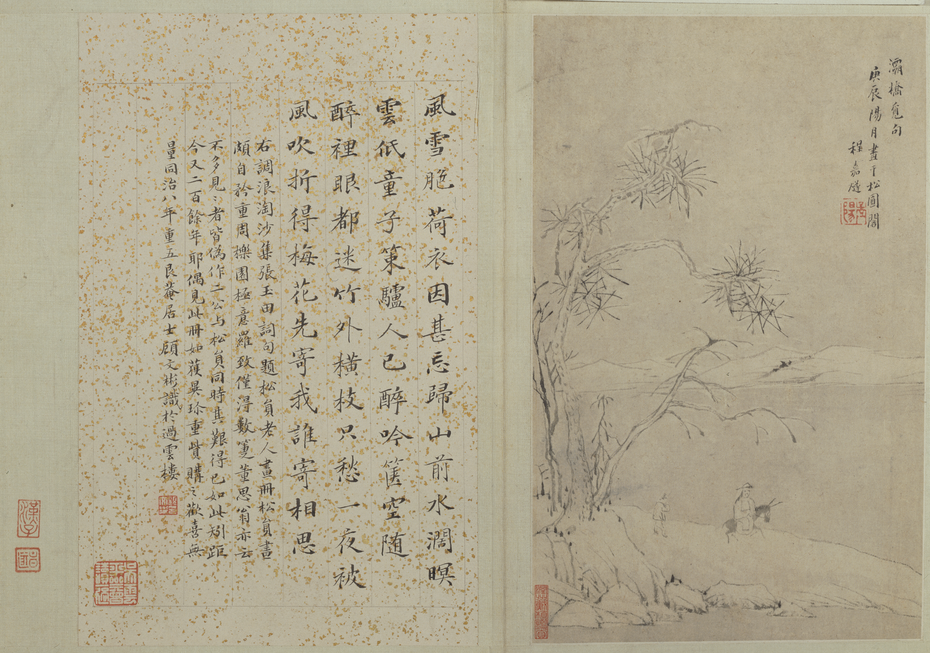 灞橋覓句
庚辰陽月畫于松圓閣
程嘉燧
風雪脃荷衣因甚忘歸山前水濶暝
雲低童子策驢人已醉吟篋空随
醉裡眼都迷竹外橫枝只愁一夜被
風吹折得梅花先寄我誰寄相思
右調浪淘沙集張玉田詞句題松員老人畫冊松員畫
頗自矜重周櫟園極意羅致僅得數箑董思翁亦云
不多見見者皆偽作二公与松員同時其難得已如此矧距
今又二百餘年耶偶見此冊如獲異珍重貲購之歡喜無
量同治八年重五艮菴居士顧文彬識於過雲樓